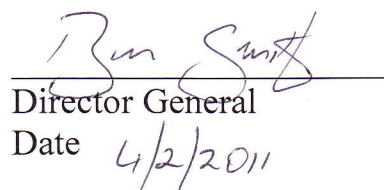 Ben Smith
Director General
Date 4/2/2011